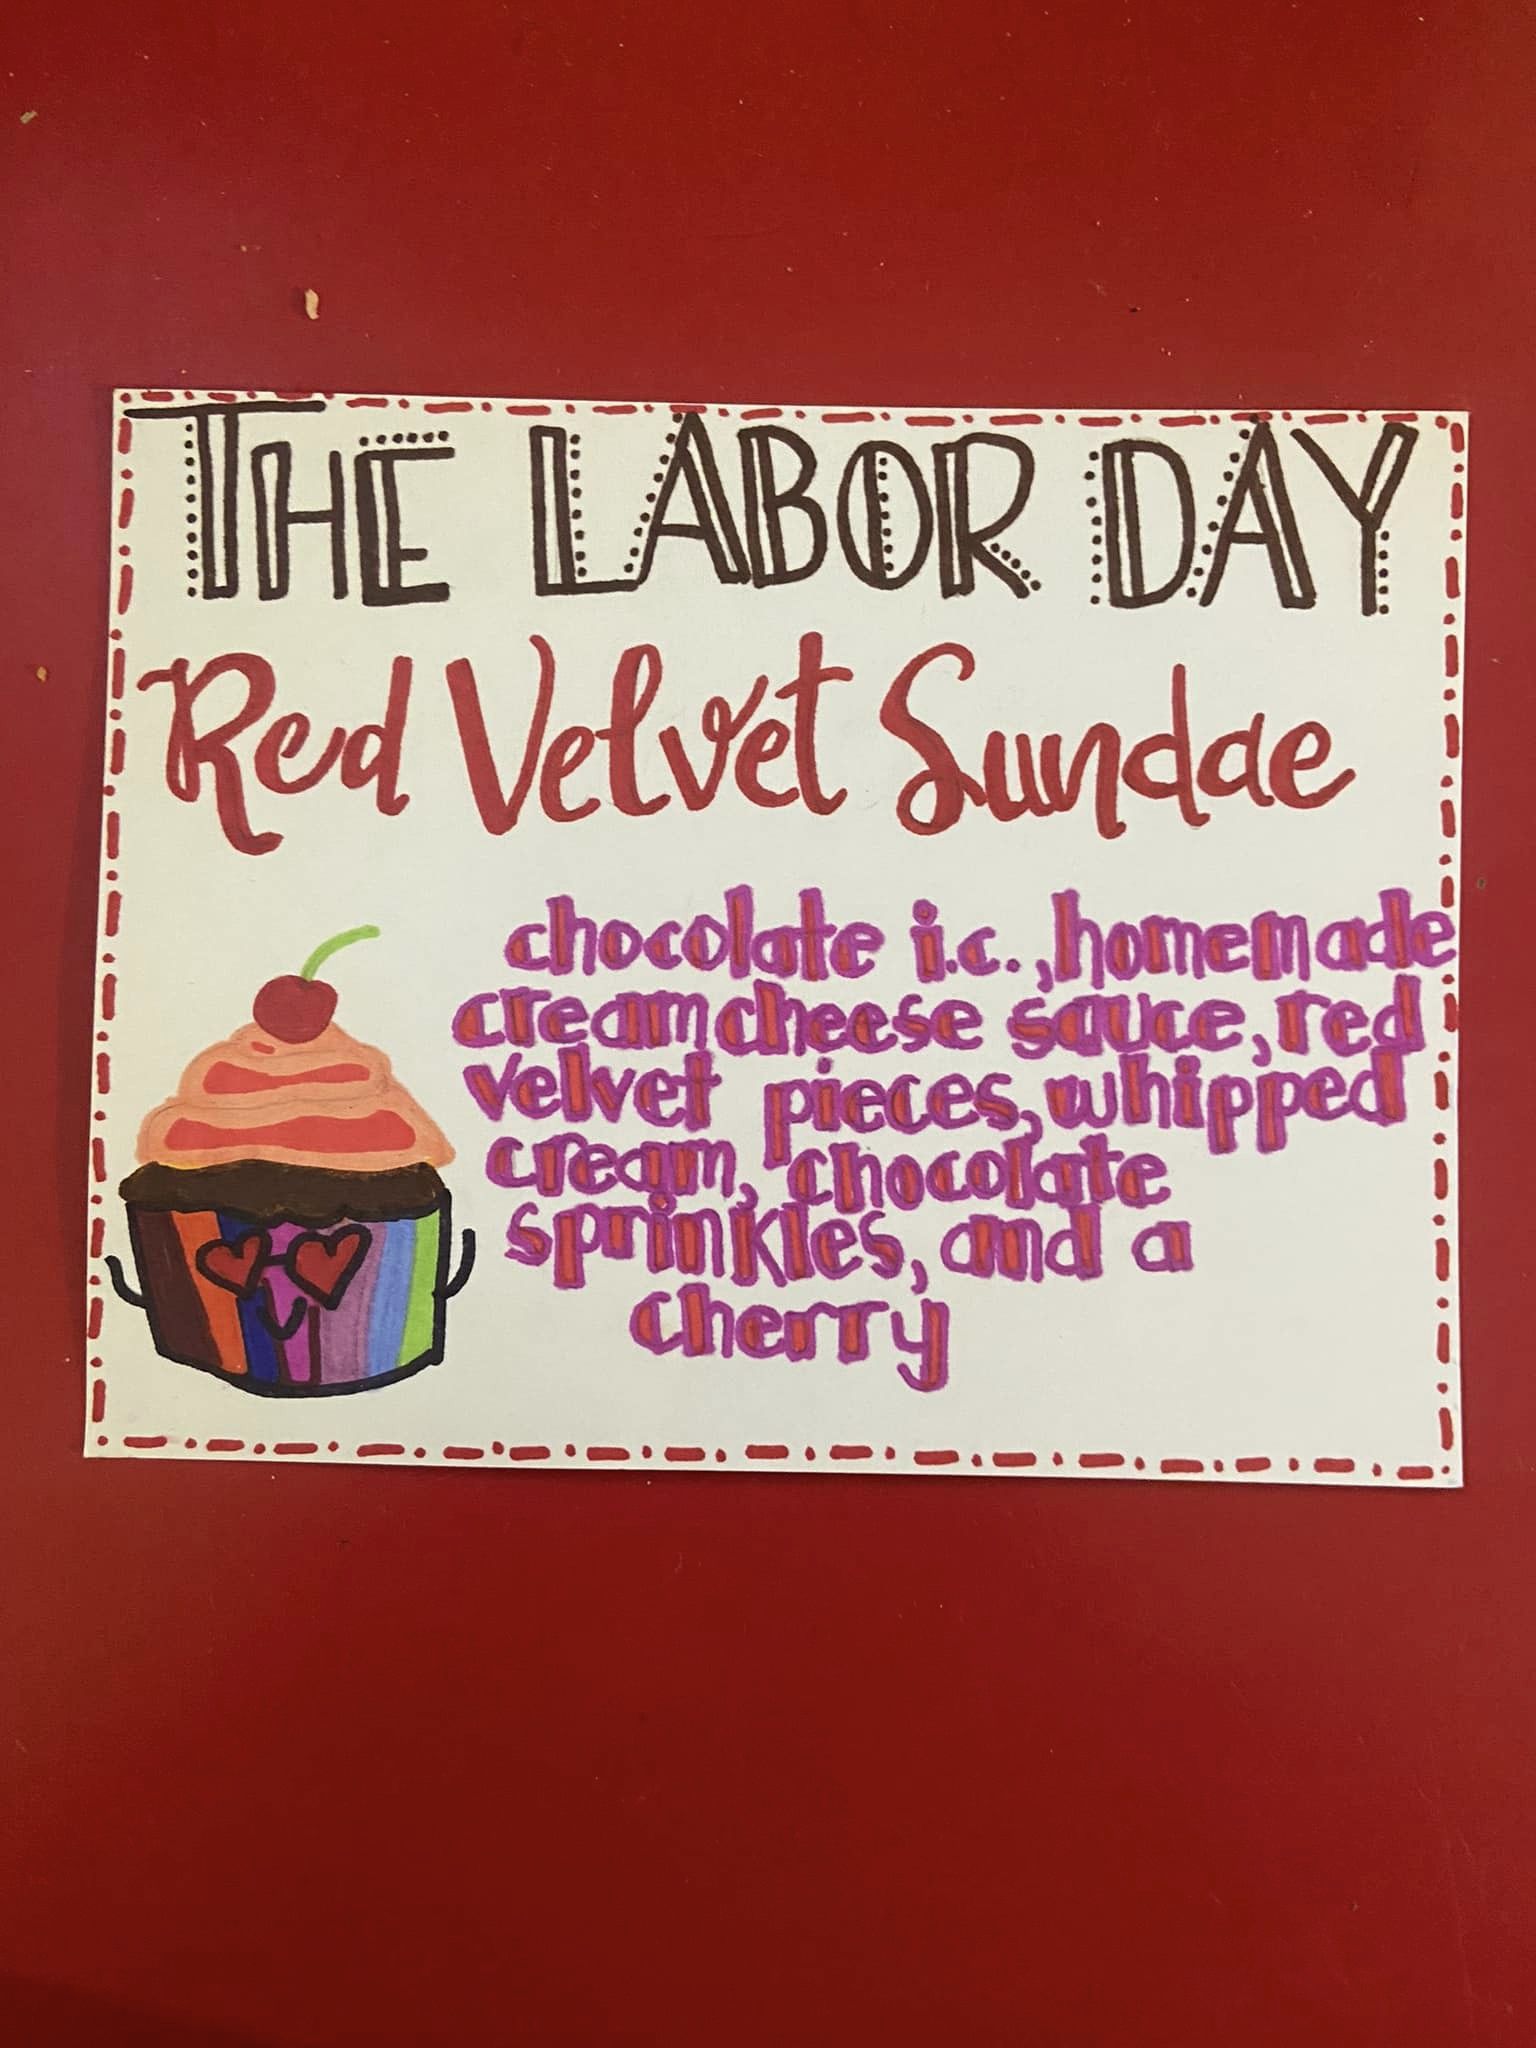 THE LABOR DAY
Red Velvet Sundae
chocolate i.c., homemade
creamcheese sauce, red
velvet pieces, whipped
cream, chocolate
sprinkles, and a
cherry